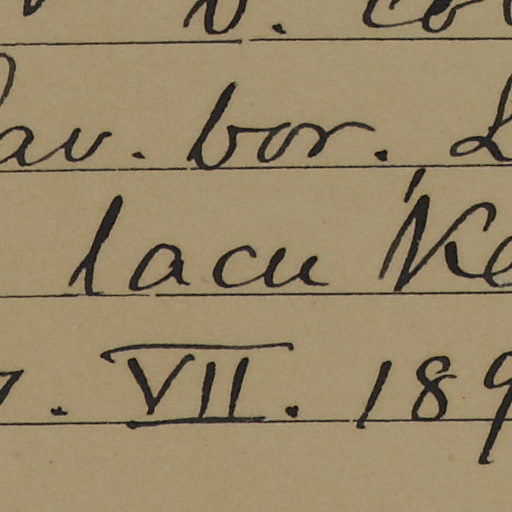 v. co
av. bor. L
lacu Ke
7. VII. 189